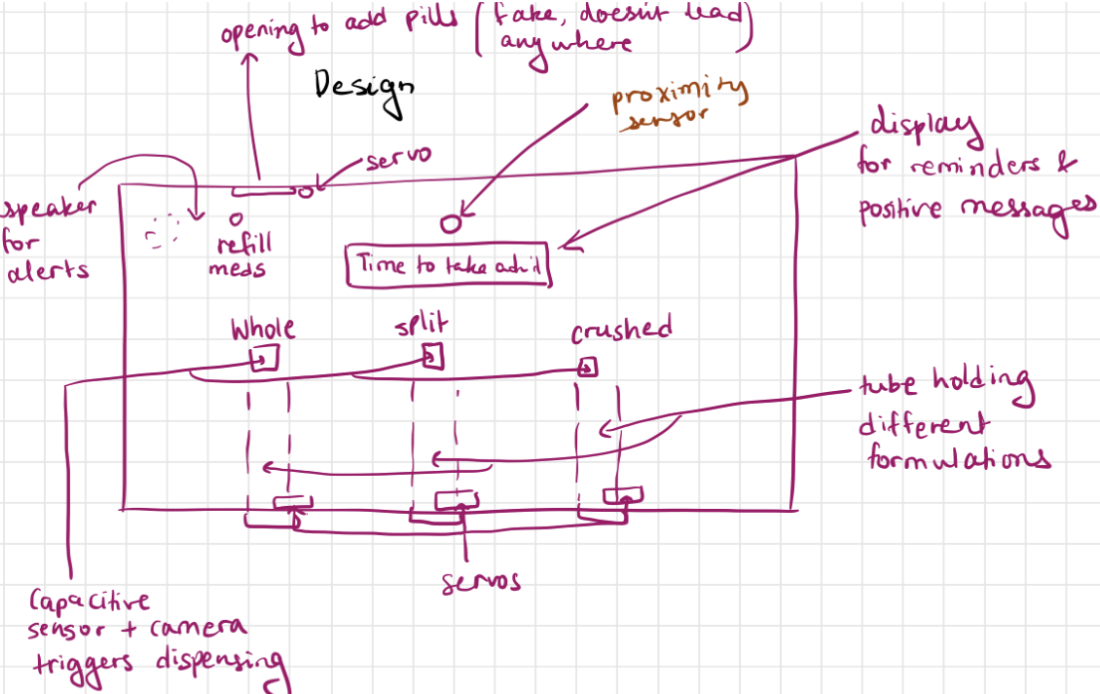 opening to add pills (fake, doesn't lead
anywhere)
Design
proximity
sensor
display
for reminders &
positive messages
servo
speaker
for
alerts
refill
meds
Time to take
Whole
split
crushed
tube holding
different
formulations
servos
Capacitive
sensor + camera
triggers dispensing